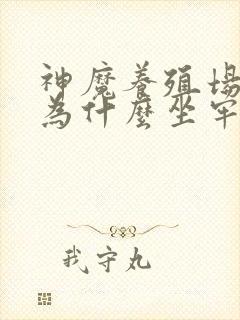 神魔養殖場
為什麼坐牢
我守丸